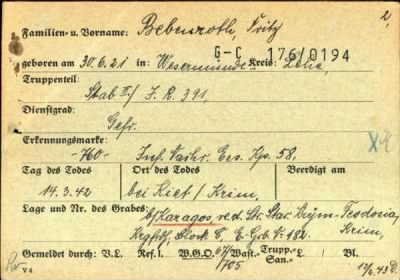 2,
Familien- u. Vorname: Bebenroth, Fritz
G-C 176/0194
geboren am 30.6.21 in: Wesermünde Kreis: Lehe
Truppenteil:
Stab II./ J.R. 391,
Dienstgrad:
Gefr.
Erkennungsmarke:
-760- Inf. Nachr. Ers. Kp. 58,
Tag des Todes Ort des Todes Beerdigt am
14.3.42 bei Kiet / Krim,
Lage und Nr. des Grabes: b/Karagos, n.d. Str. Star. Krym-Feodosia,
Krim,
Krgfdhf. Block C, E-Grb. Nr. 182.
Gemeldet durch: V.L. Ref. W.G.O. Wast.- Trupp.- L. Bl.
San.-
V 4